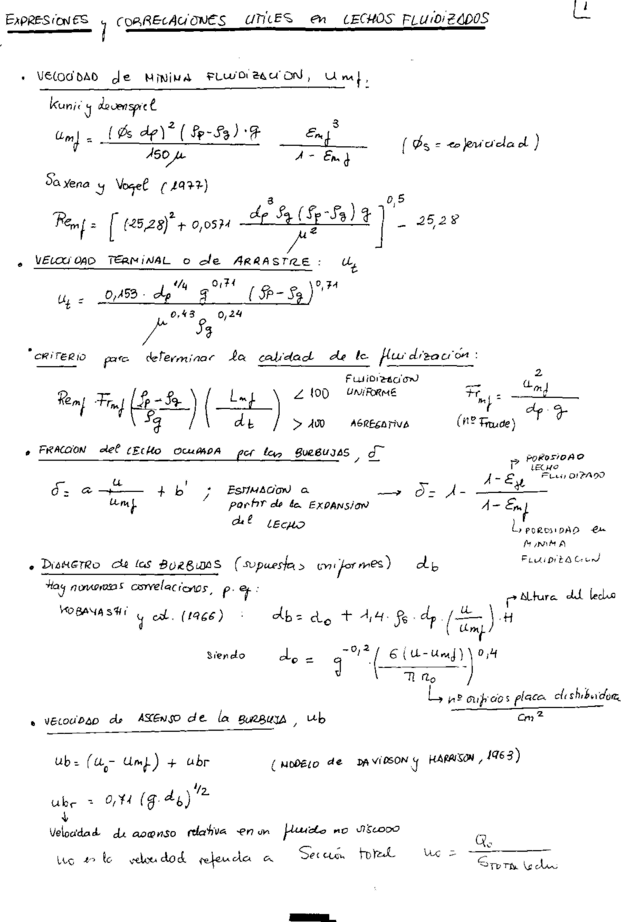 1
EXPRESIONES y CORRELACIONES UTILES en LECHOS FLUIDIZADOS
• VELOCIDAD de MINIMA FLUIDIZACION, Umf:
Kunii y Levenspiel
Umf = (φs dp)² (ρp-ρg)·g / 150 μ   εmf³ / 1 - εmf   (φs = esfericidad)
Saxena y Vogel (1977)
Remf = [ (25,28)² + 0,0571 dp³ ρg (ρp-ρg) g / μ² ]^0,5 - 25,28
• VELOCIDAD TERMINAL o de ARRASTRE: ut
ut = 0,153 · dp^1/4 g^0,71 (ρp-ρg)^0,71 / μ^0.43 ρg^0,24
• CRITERIO para determinar la calidad de la fluidización:
Remf · Frmf (ρp-ρg / ρg) (Lmf / dt) < 100 FLUIDIZACION UNIFORME   Frmf = umf² / dp·g
> 100 AGREGATIVA   (nº Fraude)
• FRACCION del LECHO OCUPADA por las BURBUJAS, δ
δ = a u / umf + b' ; ESTIMACION a partir de la EXPANSION del LECHO → δ = 1 - 1-εfl / 1-εmf
POROSIDAD LECHO FLUIDIZADO
POROSIDAD en MINIMA FLUIDIZACION
• DIAMETRO de las BURBUJAS (supuestas uniformes) db
Hay numerosas correlaciones, p. ej:
KOBAYASHI y col. (1966) : db = do + 1,4 · ρs · dp · (u / umf) · H   → Altura del lecho
siendo do = g^-0,2 · (6 (u - umf) / π no)^0,4
nº orificios placa distribuidora / cm²
• VELOCIDAD de ASCENSO de la BURBUJA, ub
ub = (uo - umf) + ubr   (MODELO de DAVIDSON y HARRISON, 1963)
ubr = 0,71 (g·db)^1/2
Velocidad de ascenso relativa en un fluido no viscoso
uo es la velocidad referida a Sección total   uo = Qo / STOTAL lecho